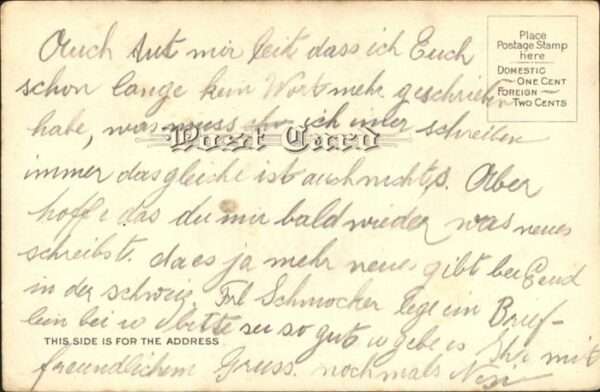 Place
Postage Stamp
here
DOMESTIC
ONE CENT
FOREIGN
TWO CENTS
Post Card
Auch tut mir leit dass ich Euch
schon lange kein Wort mehr geschrieben
habe, was muss ich imer schreiben
immer das gleiche ist auch nichts. Aber
hoffe das du mir bald wieder was neues
schreibst. da es ja mehr neues gibt bei Eend
in der schweiz. Frl Schmocker lege ein Brief-
lein bei bitte sei so gut u gebe es Ihr mit
THIS SIDE IS FOR THE ADDRESS
freundlichem Gruss. nochmals